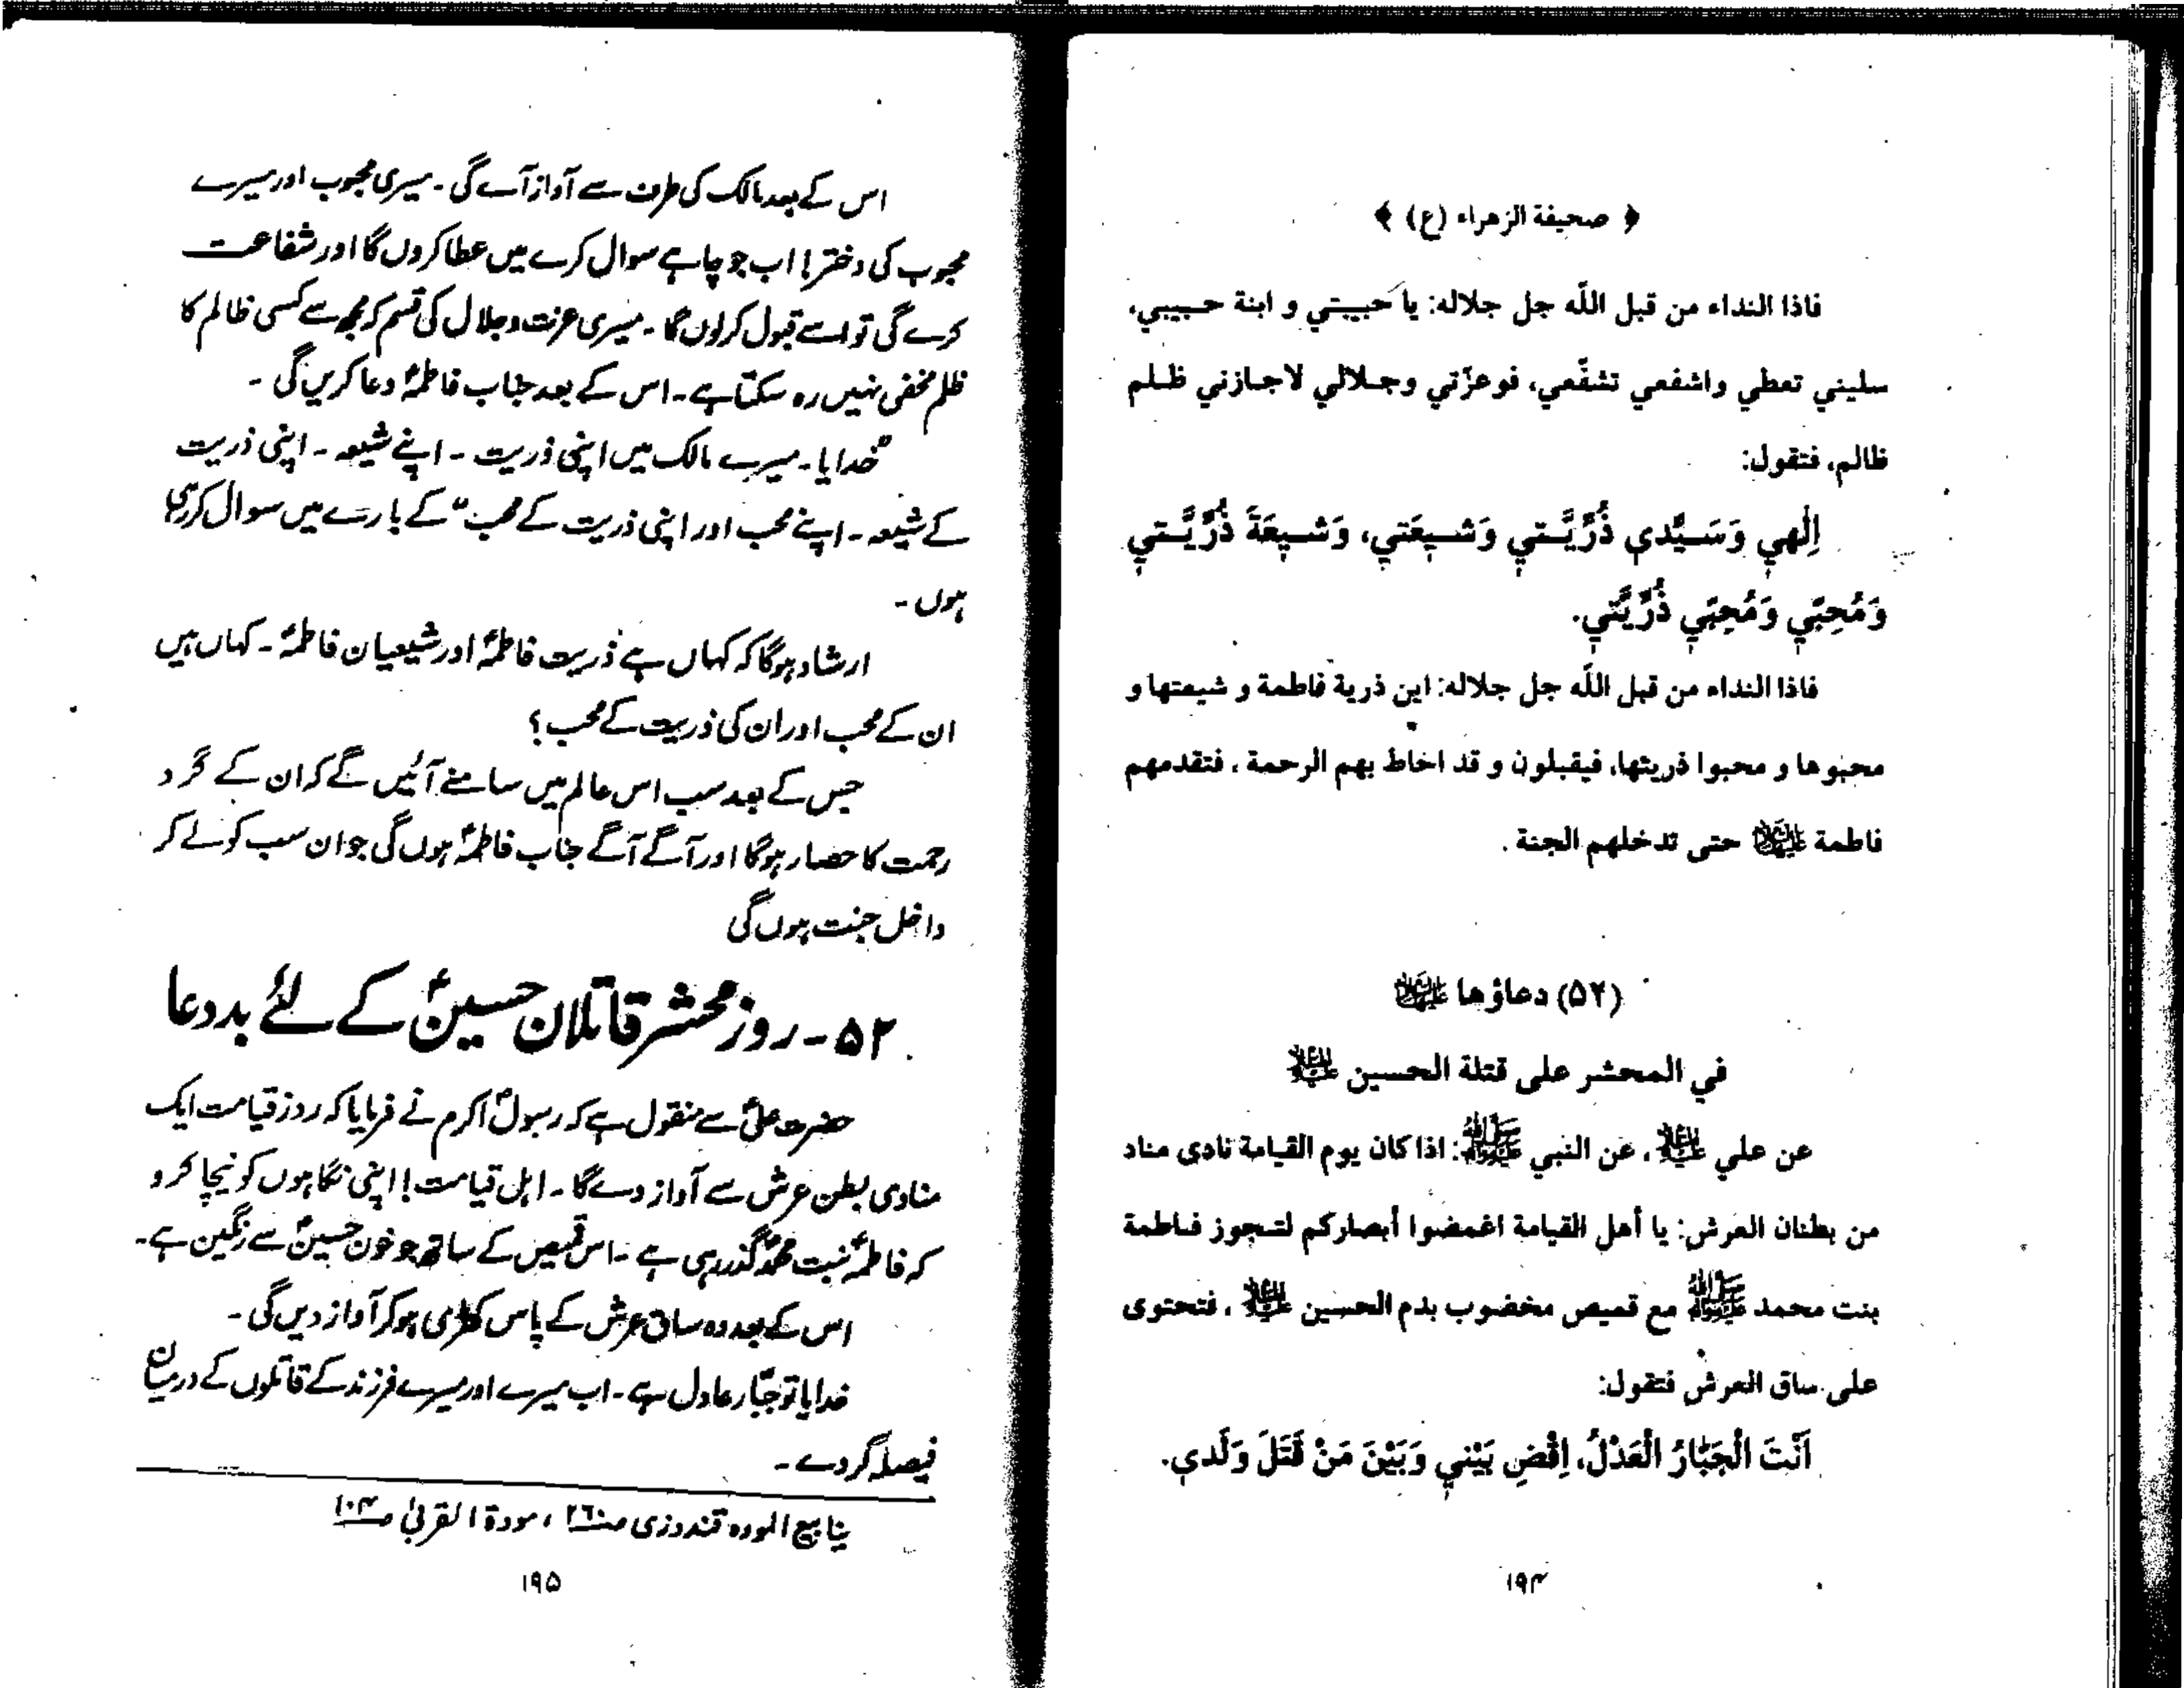 ﴿ صحيفة الزهراء (ع) ﴾
فاذا النداء من قبل اللّه جل جلاله: يا حبيبتي و ابنة حبيبي،
سليني تعطي واشفعي تشفّعي، فوعزّتي وجلالي لاجازني ظلم
ظالم، فتقول:
اِلٰهي وَسَيِّدي ذُرِّيَّتي وَشيعَتي، وَشيعَةَ ذُرِّيَّتي
وَمُحِبّي وَمُحِبّي ذُرِّيَّتي.
فاذا النداء من قبل اللّه جل جلاله: اين ذرية فاطمة و شيعتها و
محبوها و محبوا ذريتها، فيقبلون و قد احاط بهم الرحمة، فتقدمهم
فاطمة عليها السلام حتى تدخلهم الجنة.
(۵۲) دعاؤها عليها السلام
في المحشر على قتلة الحسين عليه السلام
عن علي عليه السلام، عن النبي صلى الله عليه وآله: اذا كان يوم القيامة نادى مناد
من بطنان العرش: يا أهل القيامة اغمضوا أبصاركم لتجوز فاطمة
بنت محمد صلى الله عليه وآله مع قميص مخضوب بدم الحسين عليه السلام، فتحتوى
على ساق العرش فتقول:
اَنْتَ الْجَبّارُ الْعَدْلُ، اِقْضِ بَيْني وَبَيْنَ مَنْ قَتَلَ وَلَدي.
۱۹۴
اس کے بعد مالک کی طرف سے آواز آئے گی۔ میری محبوب اور میرے
محبوب کی دختر! اب جو چاہے سوال کرے میں عطا کروں گا اور شفاعت
کرے گی تو اسے قبول کرلوں گا۔ میری عزت و جلال کی قسم کہ مجھ سے کسی ظالم کا
ظلم مخفی نہیں رہ سکتا ہے۔ اس کے بعد جناب فاطمہؑ دعا کریں گی۔
"خدایا۔ میرے مالک میں اپنی ذریت۔ اپنے شیعہ۔ اپنی ذریت
کے شیعہ۔ اپنے محب اور اپنی ذریت کے محب" کے بارے میں سوال کررہی
ہوں۔
ارشاد ہوگا کہ کہاں ہے ذریت فاطمہؑ اور شیعیان فاطمہؑ۔ کہاں ہیں
ان کے محب اور ان کی ذریت کے محب؟
جس کے بعد سب اس عالم میں سامنے آئیں گے کہ ان کے گرد
رحمت کا حصار ہوگا اور آگے آگے جناب فاطمہؑ ہوں گی جو ان سب کو لے کر
داخل جنت ہوں گی
۵۲۔ روز محشر قاتلان حسینؑ کے لئے بددعا
حضرت علیؑ سے منقول ہے کہ رسول اکرمؐ نے فرمایا کہ روز قیامت ایک
منادی بطن عرش سے آواز دے گا۔ اہل قیامت! اپنی نگاہوں کو نیچا کرو
کہ فاطمہؑ بنت محمدؐ گذر رہی ہے۔ اس قمیص کے ساتھ جو خون حسینؑ سے رنگین ہے۔
اس کے بعد وہ ساق عرش کے پاس کھڑی ہوکر آواز دیں گی۔
خدایا تو جبّار عادل ہے۔ اب میرے اور میرے فرزند کے قاتلوں کے درمیان
فیصلہ کردے۔
ینابیع المودہ قندوزی ص۲۶۰، مودۃ القربیٰ ص۱۰۴
۱۹۵